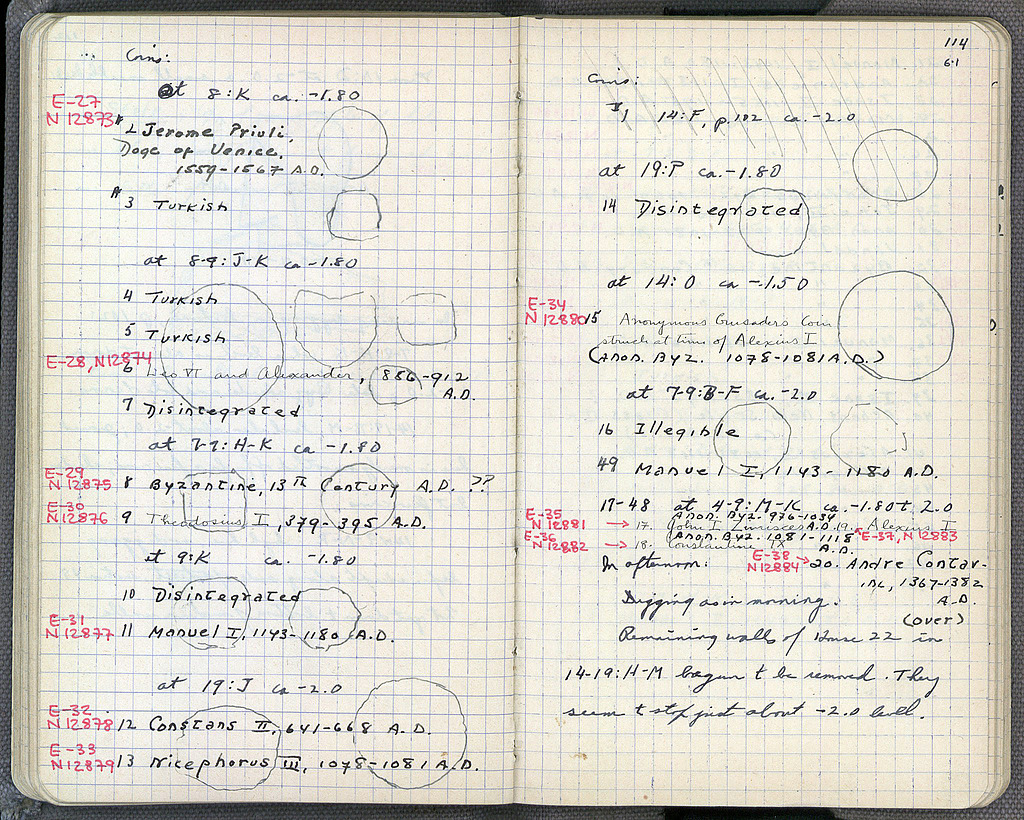 Coins:
at 8:K ca. -1.80
E-27
N 12873
2 Jerome Priuli,
Doge of Venice,
1559-1567 A.D.
3 Turkish
at 8-9:J-K ca -1.80
4 Turkish
5 Turkish
E-28, N12874
6 Leo VI and Alexander, 886-912
A.D.
7 Disintegrated
at 7-9:H-K ca -1.80
E-29
N 12875 8 Byzantine, 13th Century A.D. ??
E-30
N 12876 9 Theodosius I, 379-395, A.D.
at 9:K ca. -1.80
10 Disintegrated
E-31
N 12877 11 Manuel I, 1143-1180 A.D.
at 19:J ca -2.0
E-32
N 12878 12 Constans II, 641-668 A.D.
E-33
N 12879 13 Nicephorus III, 1078-1081 A.D.
114
6:1
Coins:
1 14:F, p.102 ca. -2.0
at 19:P ca. -1.80
14 Disintegrated
at 14:O ca -1.50
E-34
N 12880 15 Anonymous Crusaders Coin
struck at time of Alexius I
(Anon. Byz. 1078-1081 A.D.)
at 7-9:B-F ca. -2.0
16 Illegible
49 Manuel I, 1143-1180 A.D.
17-48 at 4-9:M-K ca. -1.80 t. 2.0
Anon. Byz. 976-1034
E-35
N 12881 → 17. John I Zimisces A.D. 19. Alexius I
Anon. Byz. 1081-1118 E-37, N 12883
A.D.
E-36
N 12882 → 18. Constantine IX
E-38
N 12884 → 20. Andre Contar-
ini, 1367-1382
A.D.
In afternoon:
Digging as in morning.
(over)
Remaining walls of House 22 in
14-19:H-M begun t be removed. They
seem t stop just about -2.0 level.